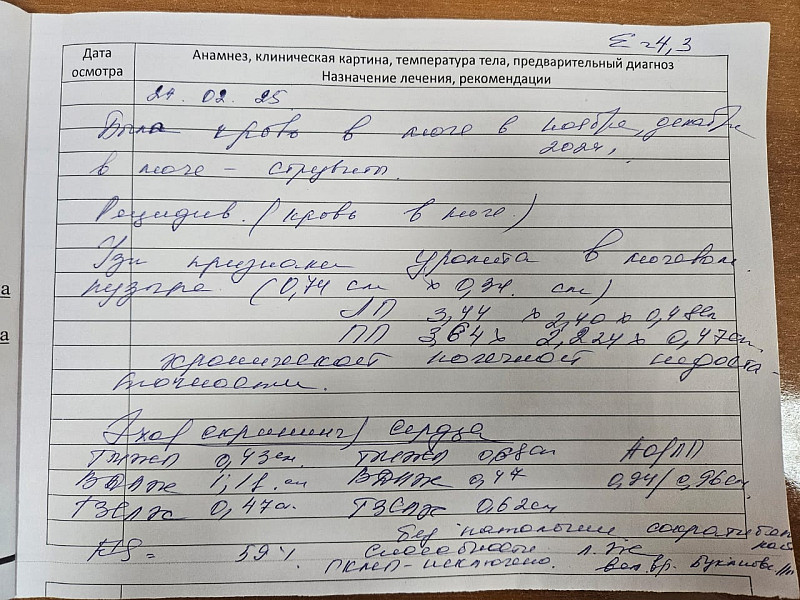 Е = 4,3
Дата осмотра
Анамнез, клиническая картина, температура тела, предварительный диагноз
Назначение лечения, рекомендации
24. 02. 25.
Была кровь в моче в ноябре, декабре
2024,
в моче – струвиты.
Рецидив. (кровь в моче.)
Узи признаки уролита в мочевом
пузыре (0,74 см х 0,34. см)
ЛП 3,44 х 2,40 х 0,48
ПП 3,64 х 2,224 х 0,47см
хроническ почечной недоста-
точности.
Эхо (скрининг) сердца
ТМЖП 0,43см. ТМЖП 0,68см АО/ЛП
0,47 0,94/0,96см.
ТЗСЛЖ 0,47 ТЗСЛЖ 0,62см
без патологии сократи
FS = 59%. способности л. ж
ГКМП – исключено. вет. вр.
а
а